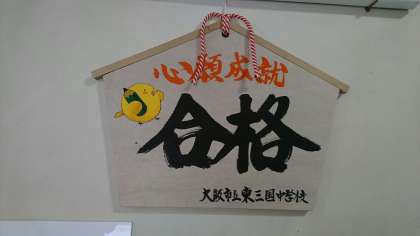 心願成就
合格
大阪市立東三国中学校